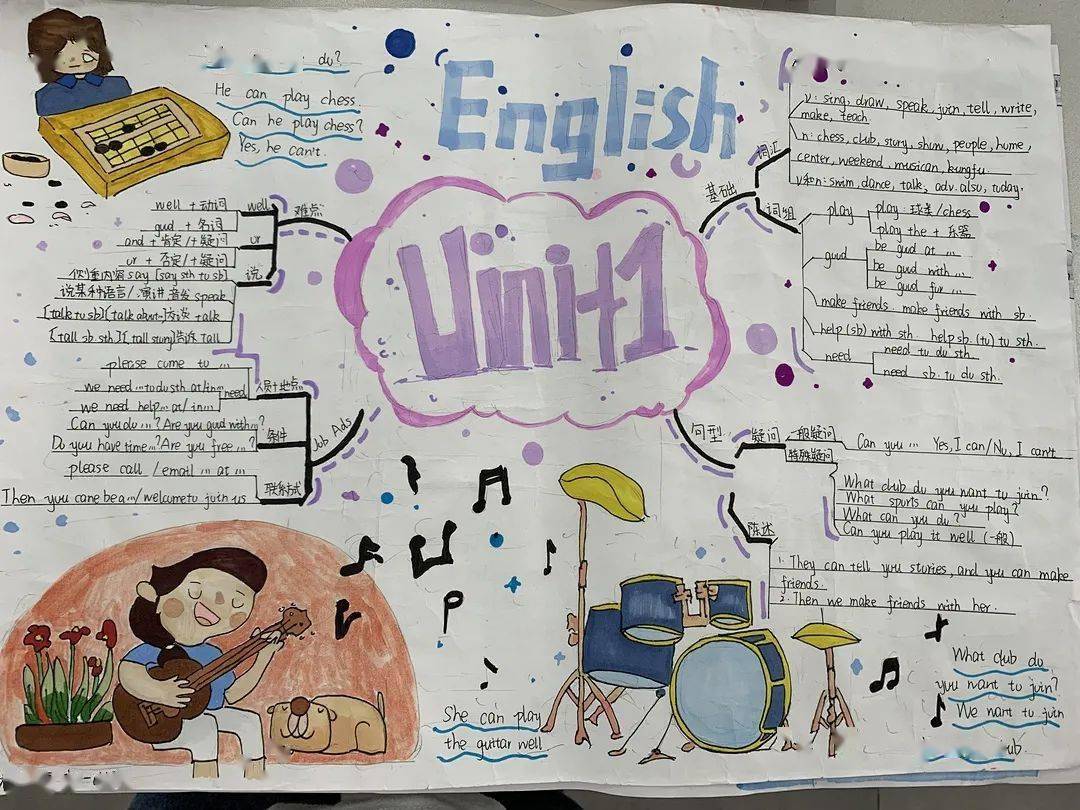 English
Uinit1
du?
He can play chess.
Can he play chess?
Yes, he can't.
难点
well
well + 动词
gud + 名词
ur
and + 肯定/+疑问
ur + 否定/+疑问
说
侧重内容 say [say sth tu sb]
说某种语言/演讲 音发 speak
[talk tu sb][talk about~]交谈 talk
[tall sb. sth][tall stury]告诉 tall
Job Ads
人员+地点
please cume tu ...
need
we need ... tu du sth at/in...
we need help ... at/ in ...
条件
Can yuu du ...? Are yuu gud with...?
Du yuu have time...? Are yuu free ...?
联系方式
please call /email ... at ...
Then yuu cane be a.../welcume tu juin us
基础
词汇
v: sing, draw, speak, juin, tell, write,
make, teach.
n: chess, club, stury, shuw, peuple, hume,
center, weekend, musican, kungfu
v和n: swim, dance, talk, adv. alsu, tuday,
词组
play
play : 球类/chess
play the + 乐器
guud
be gud at ...
be gud with ...
be gud fur ...
make friends. make friends with sb.
help (sb) with sth. help sb. (tu) tu sth.
need
need tu du sth.
need sb. tu du sth.
句型
疑问
一般疑问
Can yuu ... Yes, I can/Nu, I can't
特殊疑问
What club du yuu want tu juin?
What spurts can yuu play?
What can yuu du?
Can yuu play it well (一般)
陈述
1. They can tell yuu sturies, and yuu can make
friends.
2. Then we make friends with her.
She can play
the guitar well
What club du
yuu want tu juin?
We want tu juin
ub.